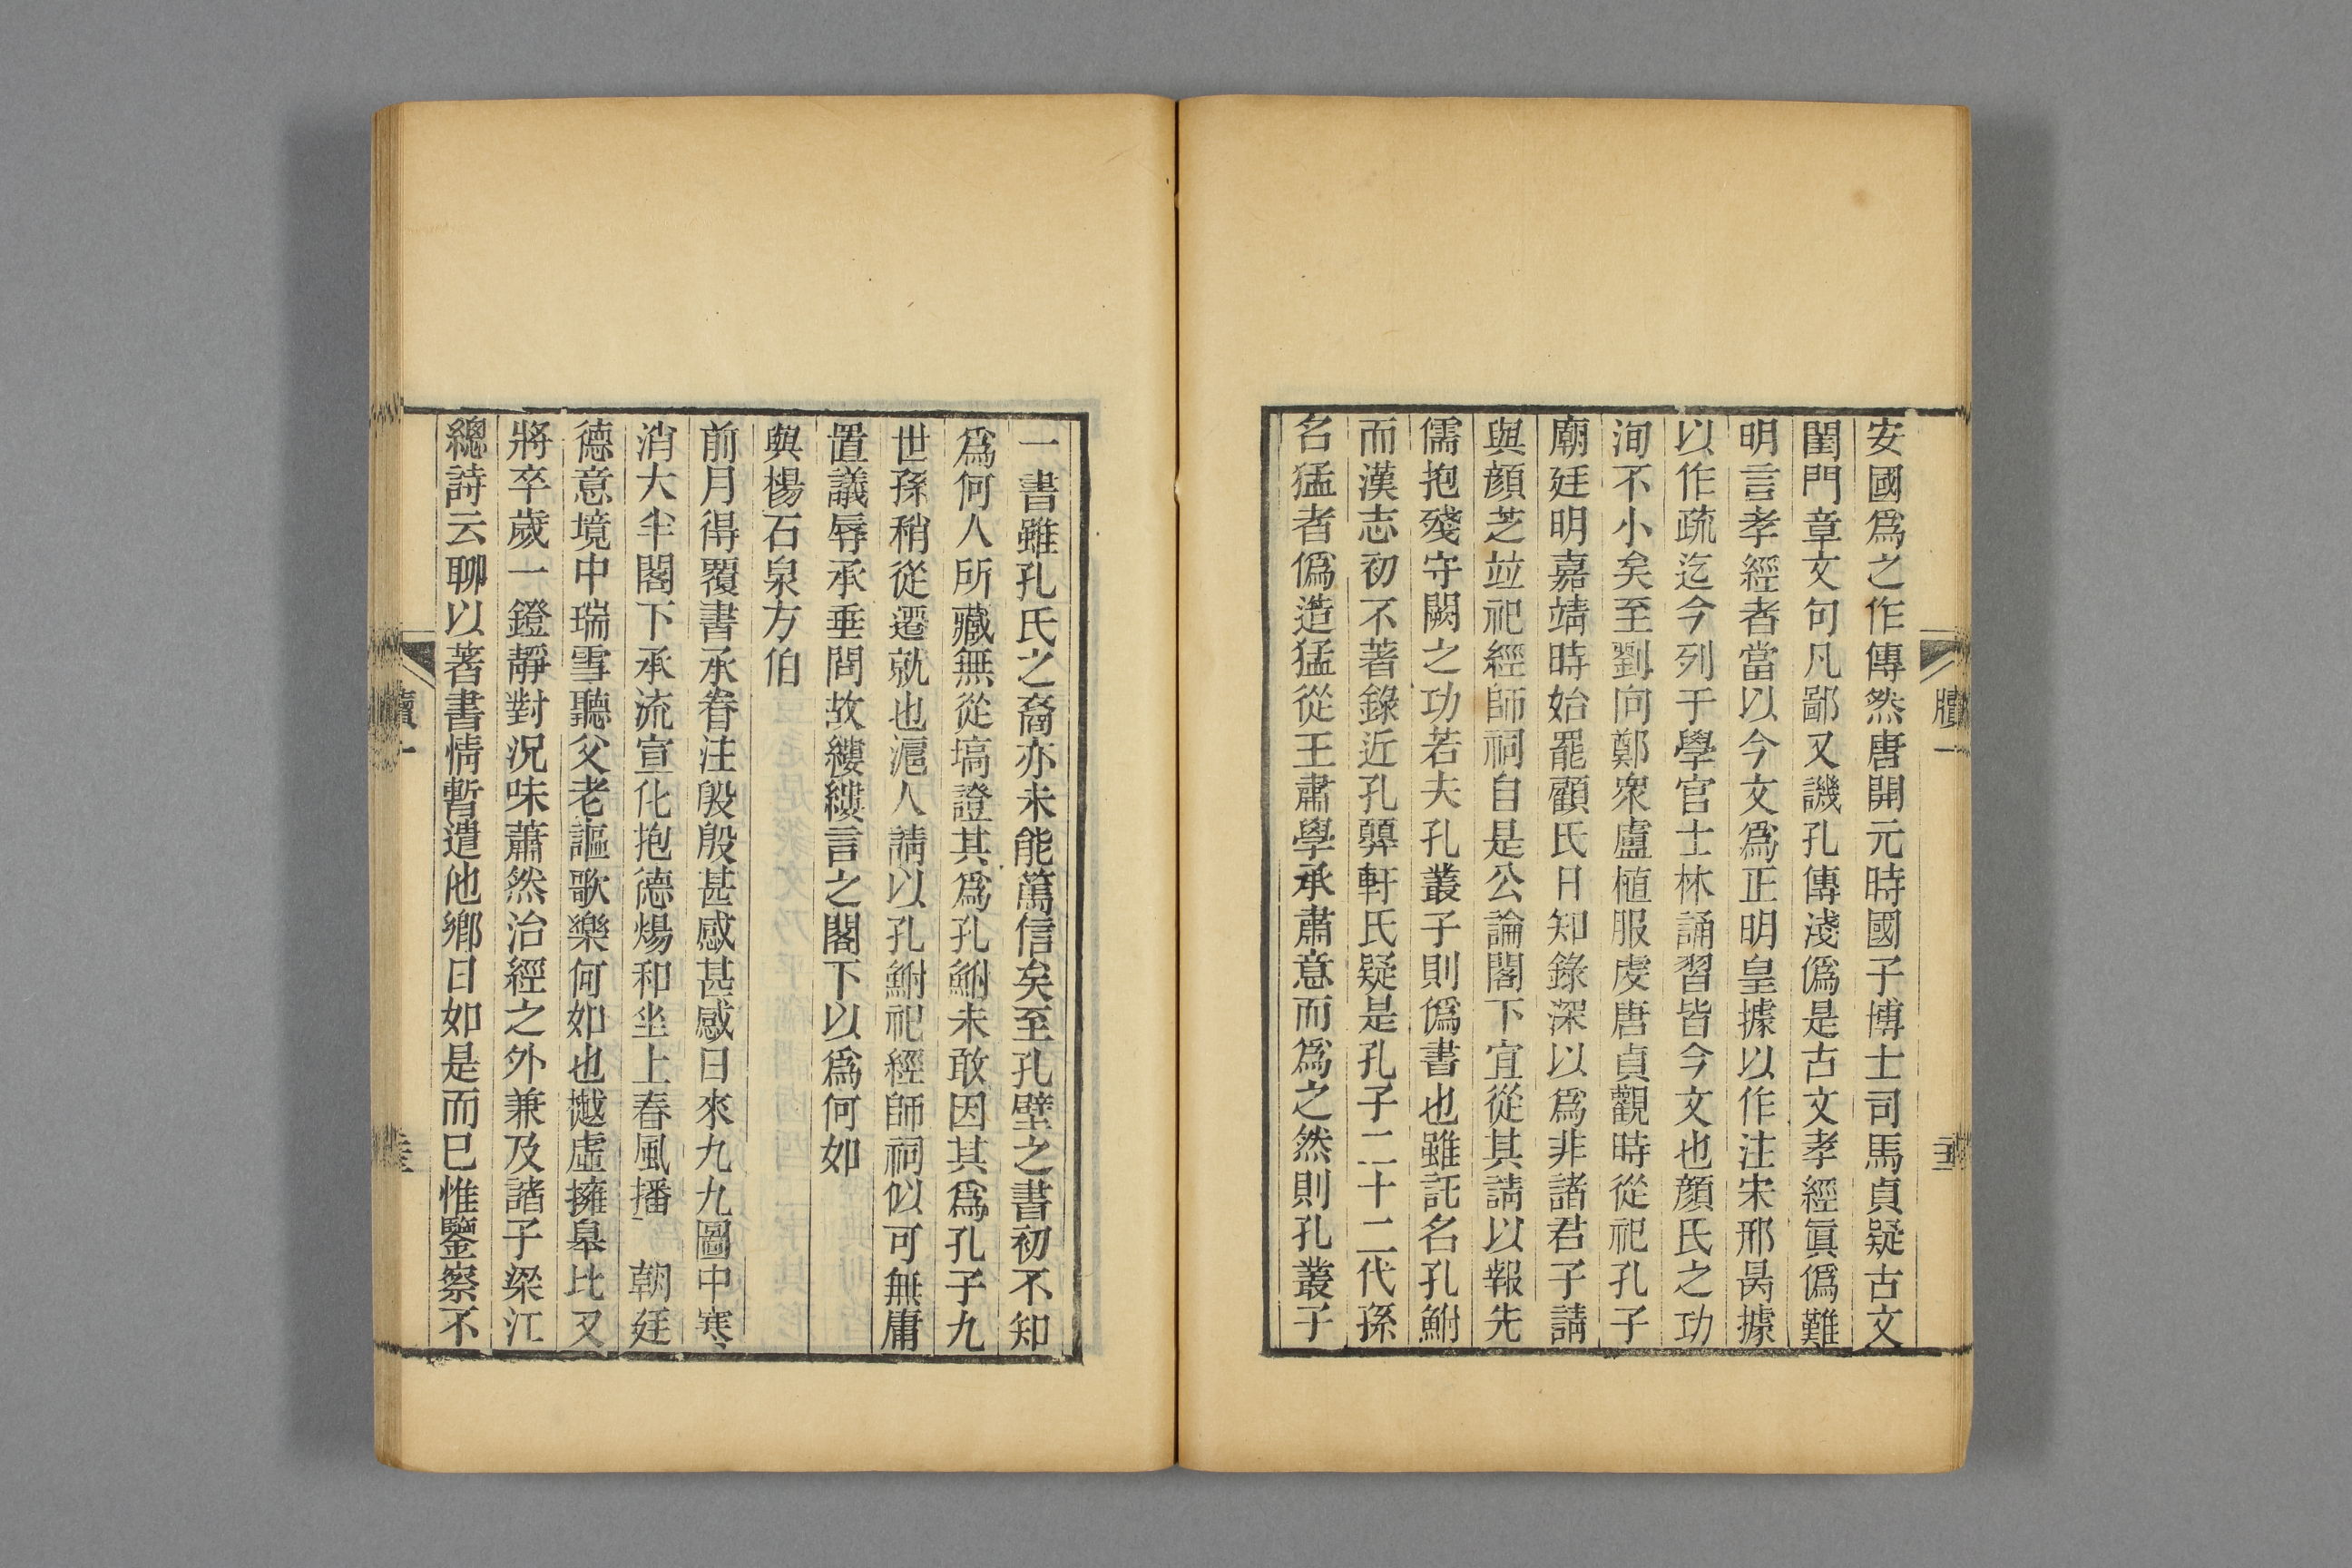 安國爲之作傳然唐開元時國子博士司馬貞疑古文
閨門章文句凡鄙又譏孔傳淺僞是古文孝經眞僞難
明言孝經者當以今文爲正明皇據以作注宋邢昺據
以作疏迄今列于學官士林誦習皆今文也顏氏之功
洵不小矣至劉向鄭衆盧植服虔唐貞觀時從祀孔子
廟廷明嘉靖時始罷顧氏日知錄深以爲非諸君子請
與顏芝竝祀經師祠自是公論閣下宜從其請以報先
儒抱殘守闕之功若夫孔叢子則僞書也雖託名孔鮒
而漢志初不著錄近孔顨軒氏疑是孔子二十二代孫
名猛者僞造猛從王肅學承肅意而爲之然則孔叢子
牘一
一書雖孔氏之裔亦未能篤信矣至孔壁之書初不知
爲何人所藏無從塙證其爲孔鮒未敢因其爲孔子九
世孫稍從遷就也滬人請以孔鮒祀經師祠似可無庸
置議辱承垂問故縷縷言之閣下以爲何如
與楊石泉方伯
前月得覆書承眷注殷殷甚感甚感日來九九圖中寒
消大半閣下承流宣化抱德煬和坐上春風播 朝廷
德意境中瑞雪聽父老謳歌樂何如也樾虛擁皋比又
將卒歲一鐙靜對況味蕭然治經之外兼及諸子梁江
總詩云聊以著書情暫遣他鄉日如是而已惟鑒察不